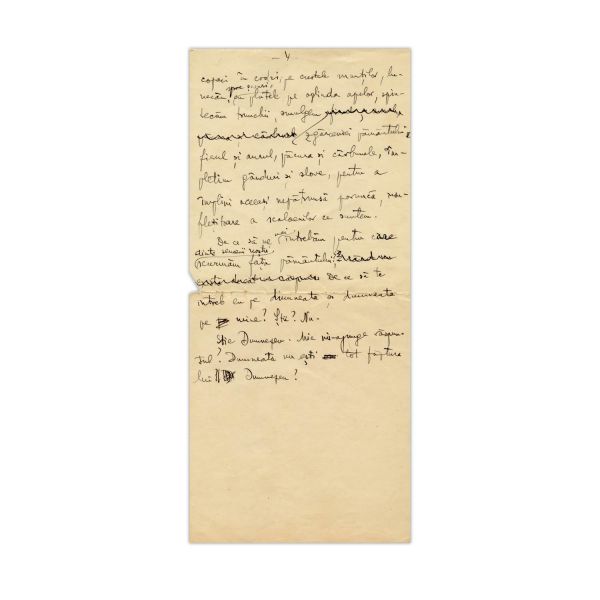 — V —
copaci în codri, pe crestele munților, lu-
necăm, spre șesuri, cu plutele pe oglinda apelor, spin-
tecăm trunchi, smulgem
sgârceniei pământului
fierul și aurul, păcura și cărbunele, îm-
pletim gânduri și slove, pentru a
împlini aceeași nepătrunsă poruncă,
a scalacrilor ce suntem.
De ce să ne mai întrebăm pentru care
dintre semenii noștri
scurmăm fața pământului?
De ce să te
întreb eu pe dumneata și dumneata
pe mine? Știe? Nu.
Știe Dumnezeu. Mie mi-ajunge răspun-
sul? Dumneata nu ești tot făptura
lui Dumnezeu?